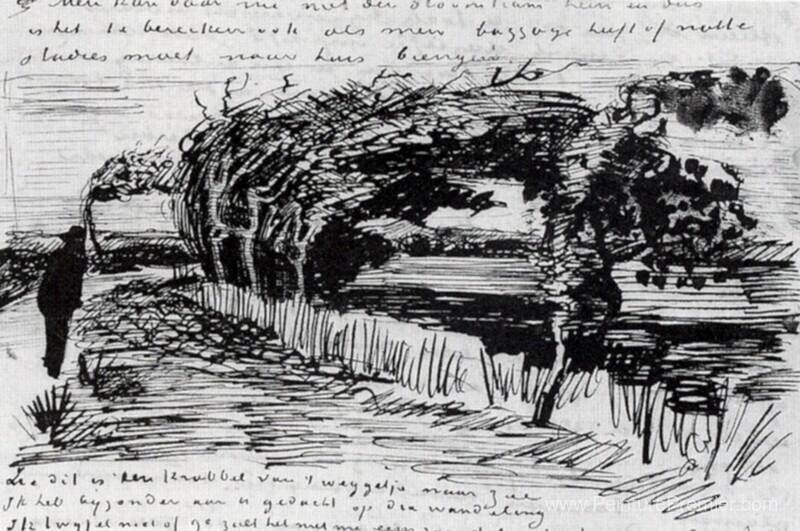 Men kan daar nu met den stoomtram heen en dus
is het te bereiken ook als men baggage heeft of natte
studies moet naar huis brengen.
Zie dit is een krabbel van 't weggetje naar zee
Ik heb byzonder aan u gedacht op die wandeling
Ik twyfel niet of ge zult het met me eens
www.PeinturePremier.com